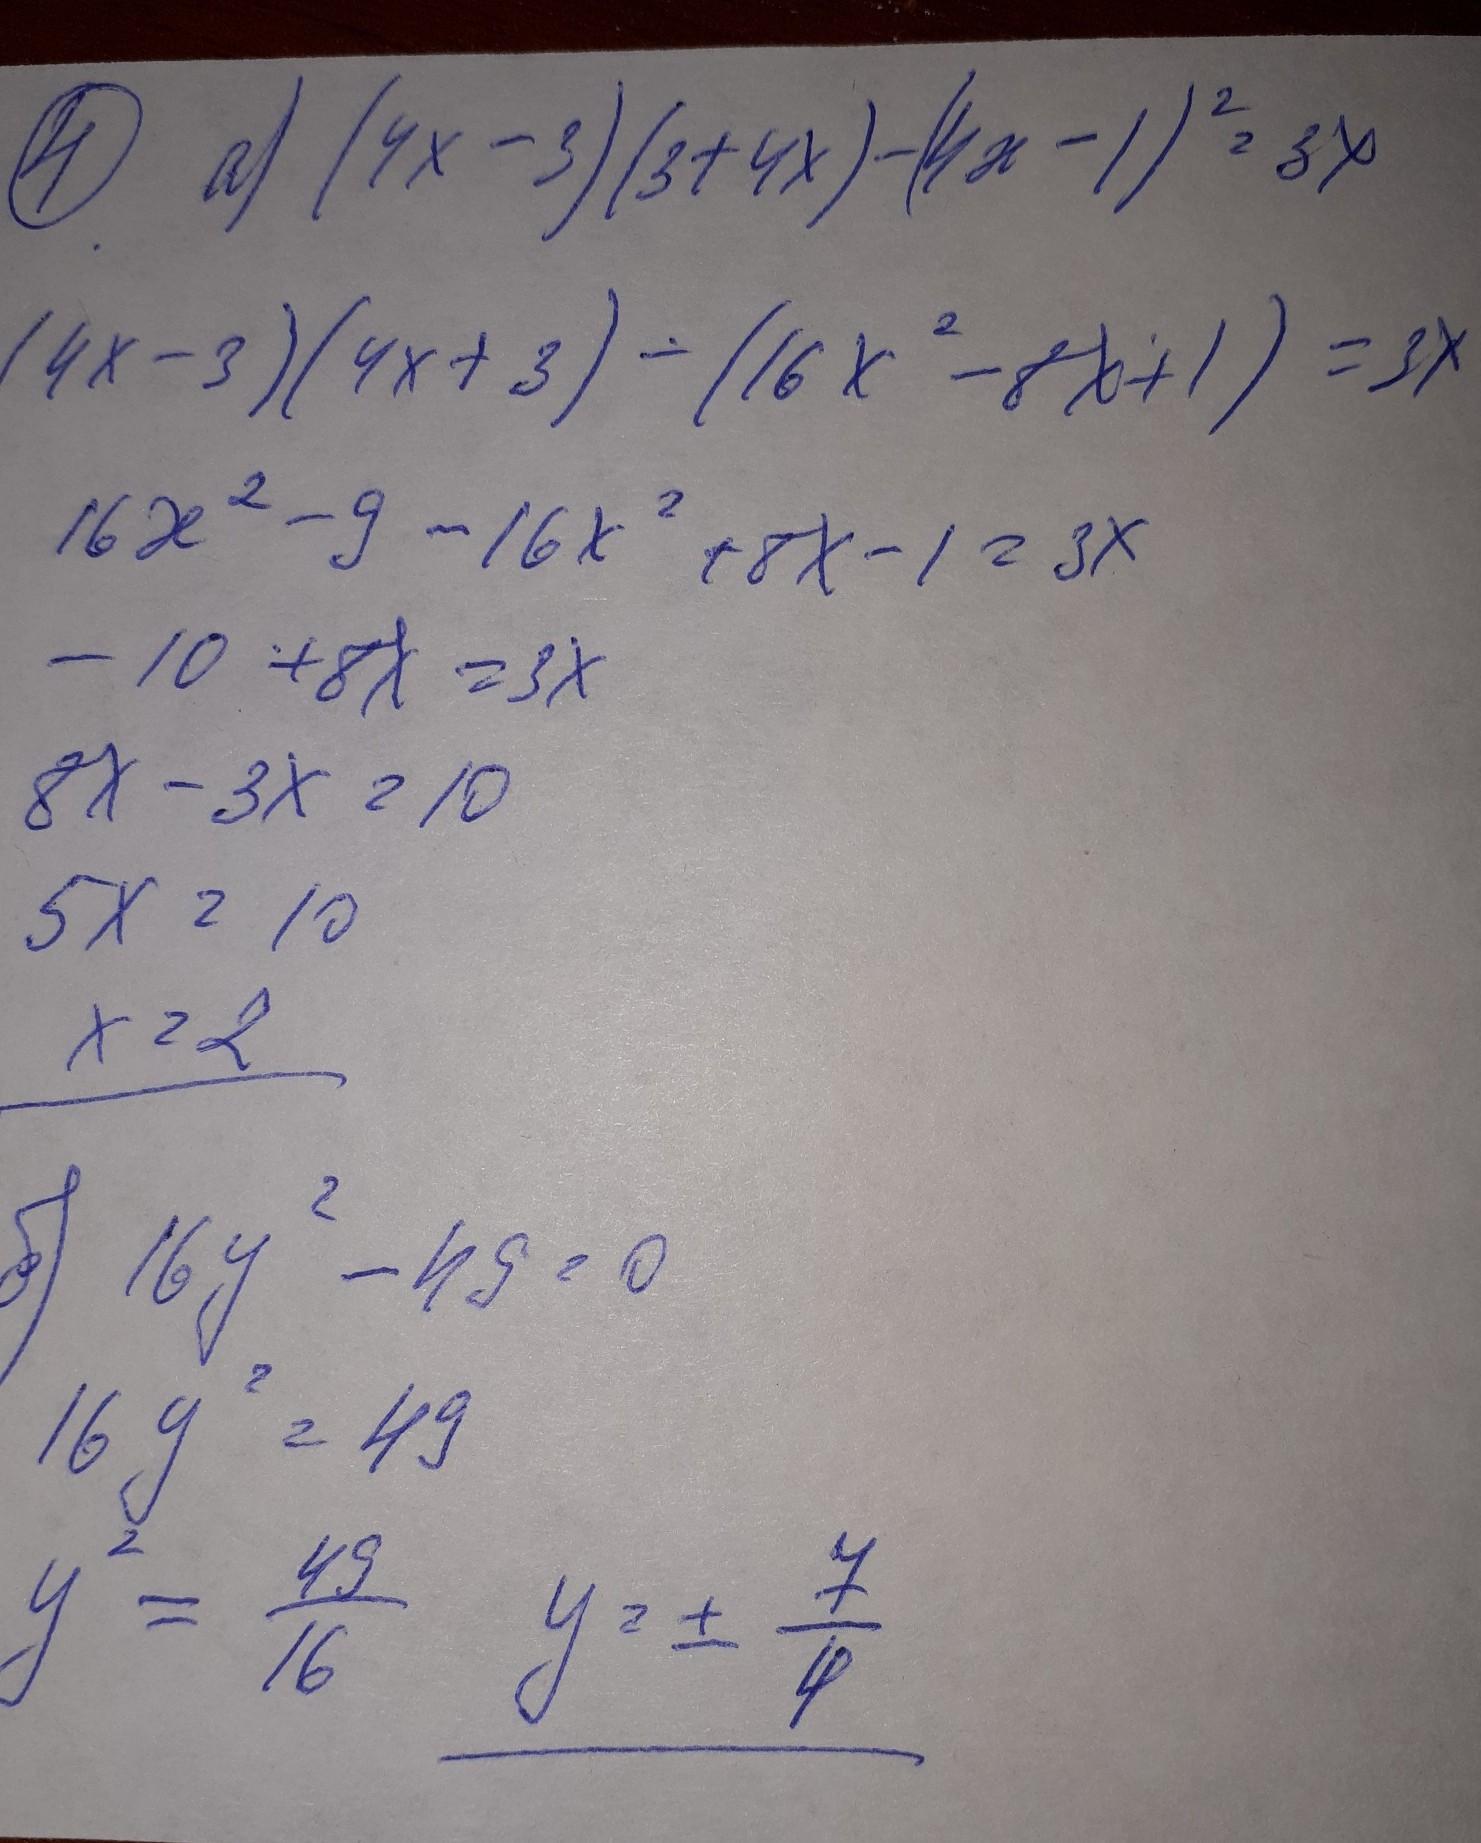 ④ а) (4x-3)(3+4x)-(4x-1)²=3x
(4x-3)(4x+3)-(16x²-8x+1)=3x
16x²-9-16x²+8x-1=3x
-10+8x=3x
8x-3x=10
5x=10
x=2
б) 16y²-49=0
16y²=49
y²=49/16 y=±7/4